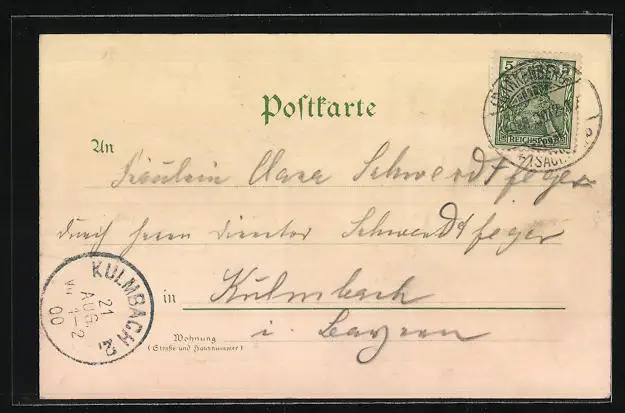 Postkarte
5 5
FRANKENBERG
REICHSPOST
(SACHS.)
An
Fräulein Clara Schwerdtfeger
durch Herrn Director Schwerdtfeger
in Kulmbach
i. Bayern
Wohnung
(Straße und Hausnummer)
KULMBACH
21
AUG.
1-2
00
2